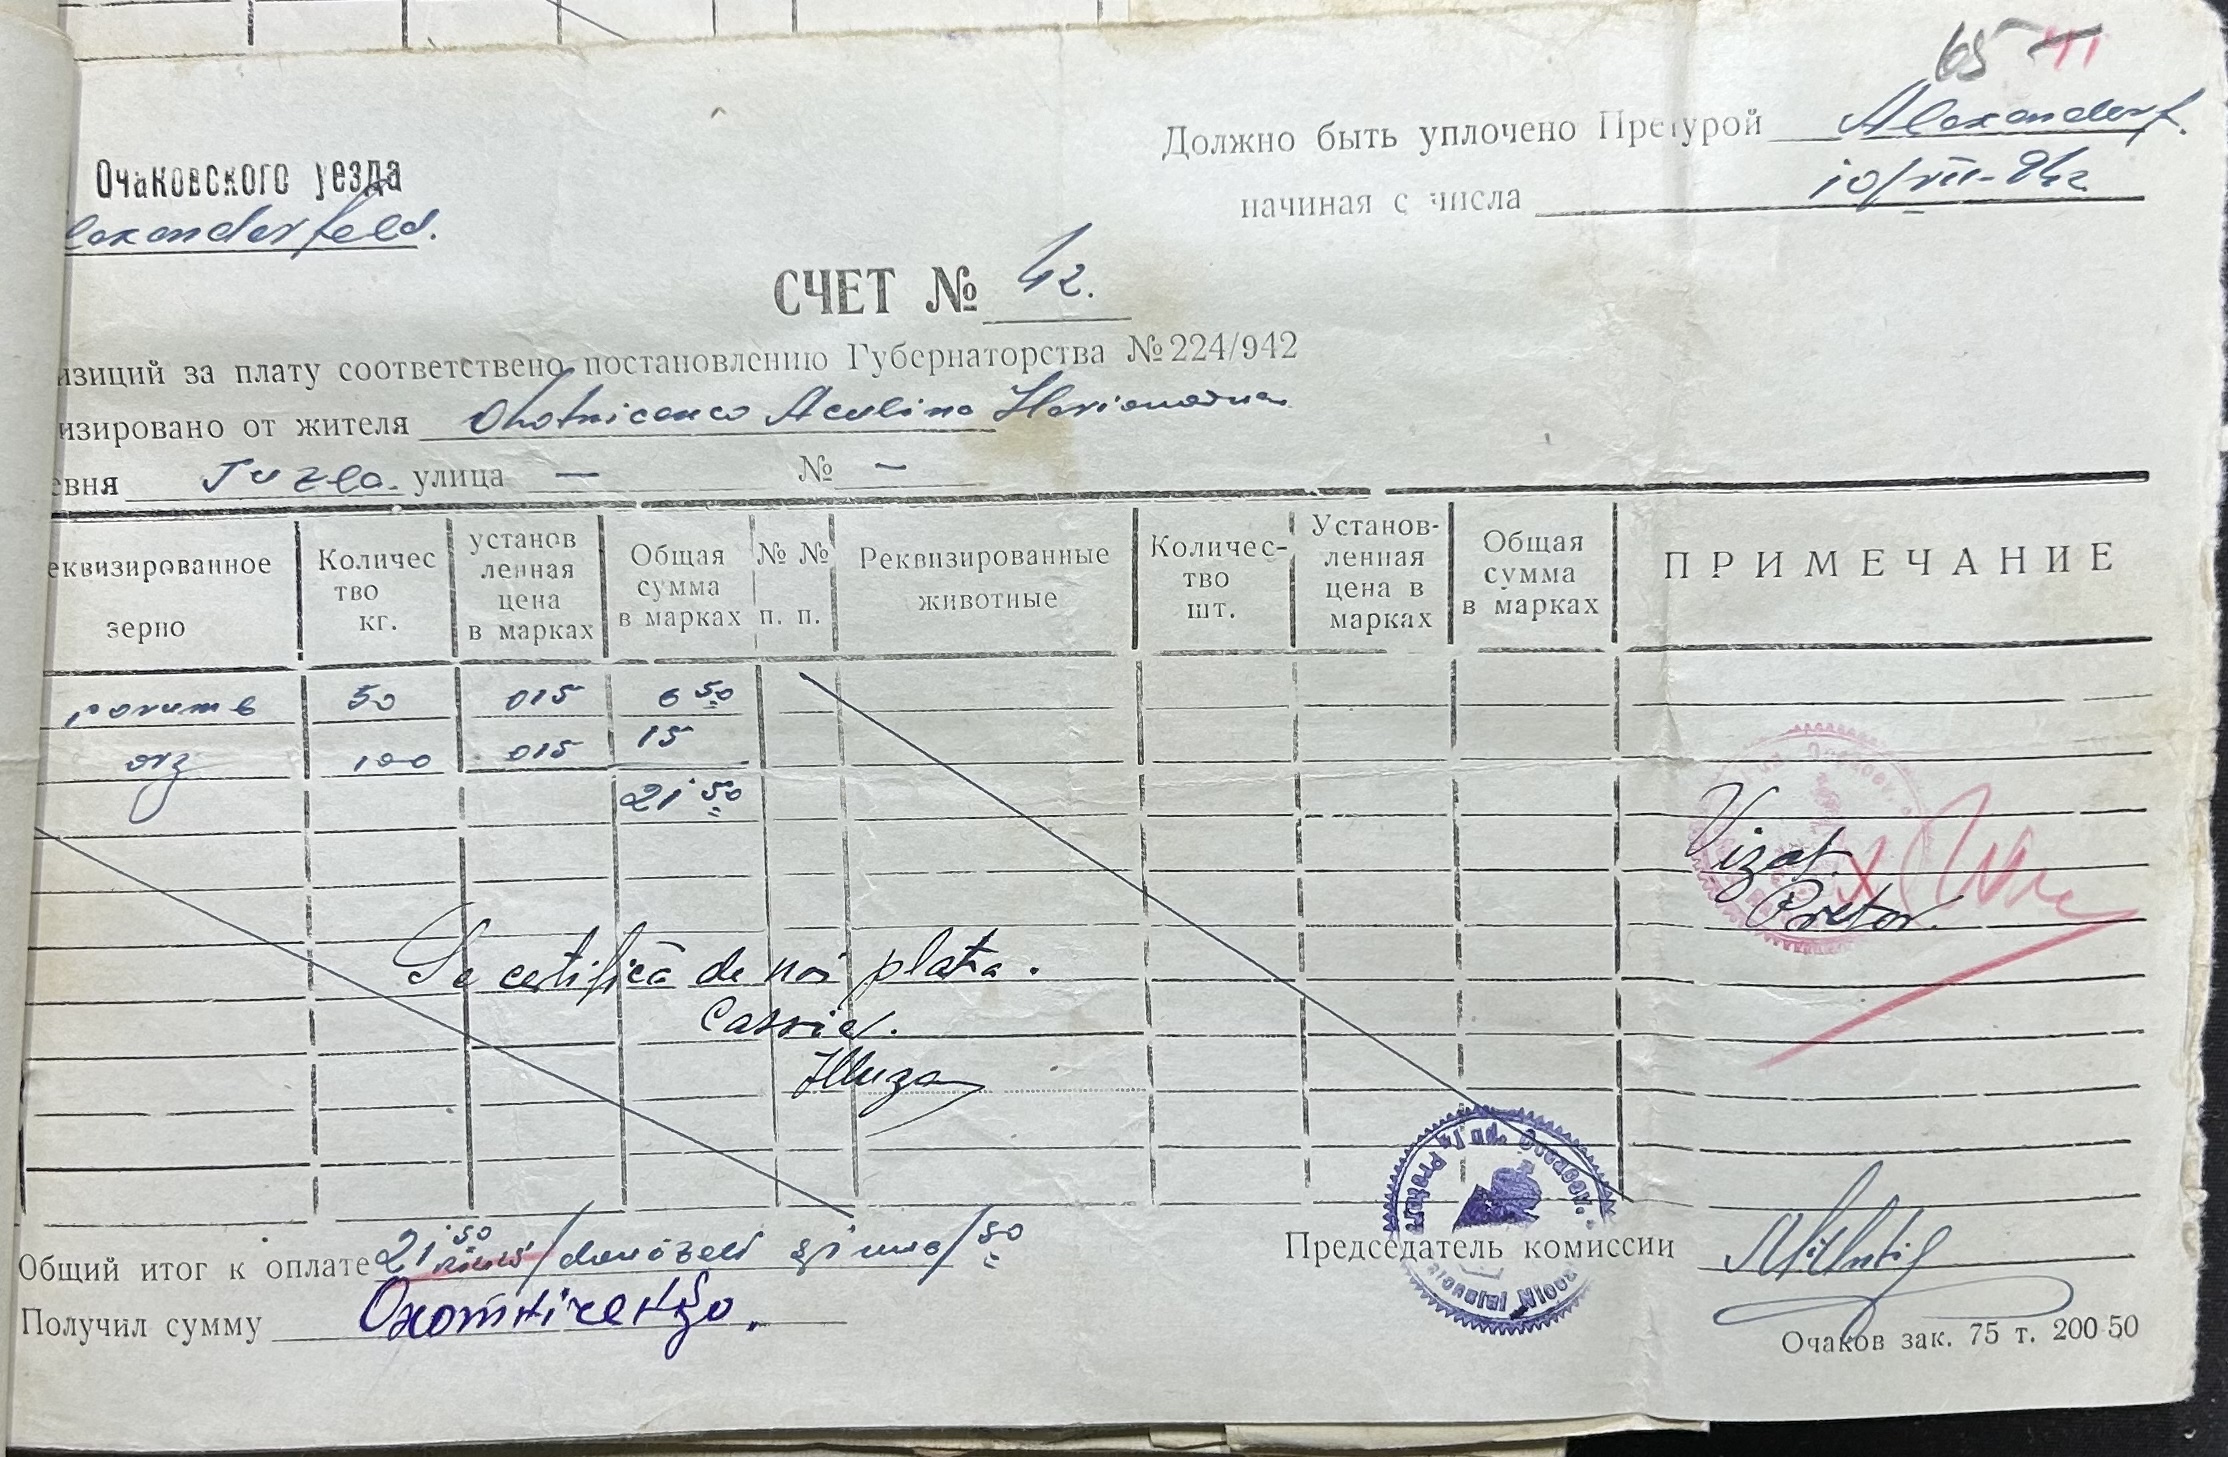 65 11
Должно быть уплочено Претурой Alexanderf.
Очаковского уезда
начиная с числа 10/VII-942
lexanderfeld.
СЧЕТ № 42.
изиций за плату соответствено постановлению Губернаторства № 224/942
изировано от жителя Ohotnicenco Aculina Ilarionovna
евня Tuzla. улица — № —
еквизированное зерно Количес тво кг. установ ленная цена в марках Общая сумма в марках № № п. п. Реквизированные животные Количес- тво шт. Установ- ленная цена в марках Общая сумма в марках ПРИМЕЧАНИЕ
50 015 6 50
orz 100 015 15
21 50
Vizat
Pretor.
Se certifică de noi plata.
Casier.
Общий итог к оплате 21 50 /douăzeci și una/ 50
Председатель комиссии
Получил сумму Охотніченко.
Очаков зак. 75 т. 200-50